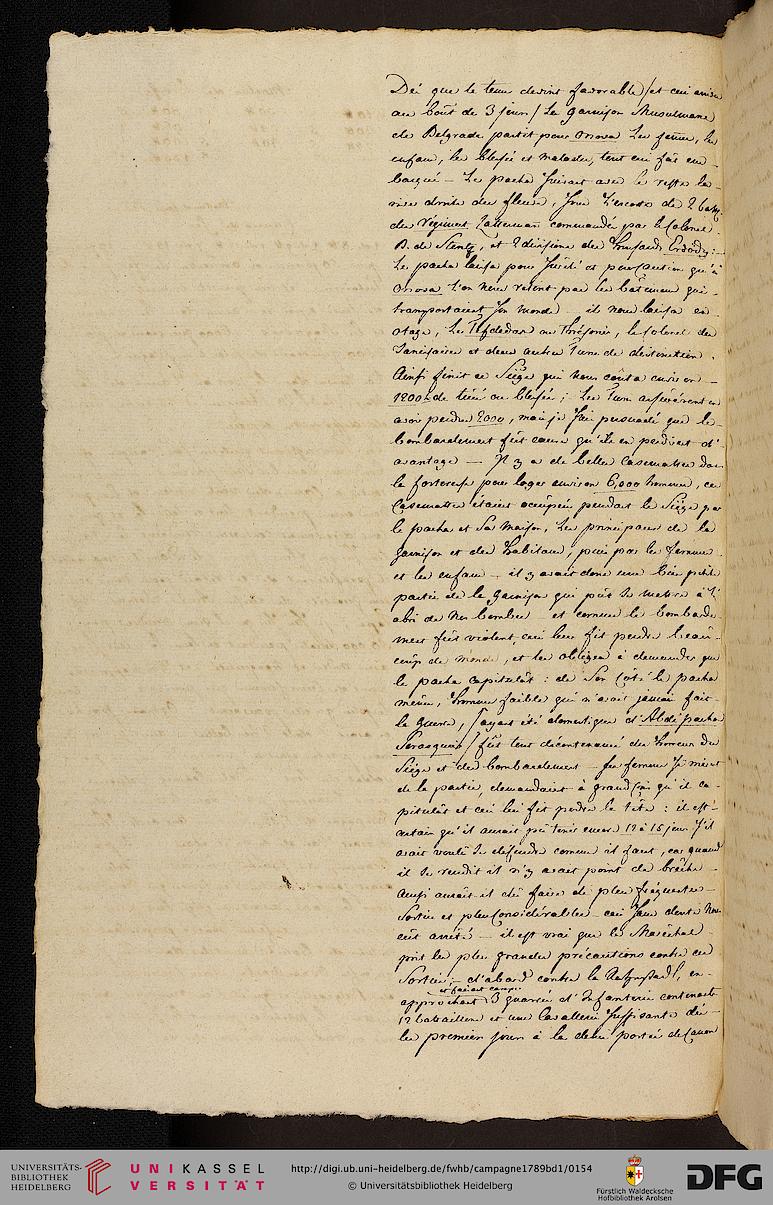 Dés que le tems devint favorable /et ceci arriva
au bout de 3 jours/ la garnison Musulmane
de Belgrade partit pour Orsova Les femes, les
enfans, les blessés et malades, tout ceci fut em-
barqué - Le pacha suivant avec le reste la
rive droite du fleuve, sous l'escorte de 2 bat:
du Regiment Latterman commandés par le Colonel
B. de Stentz, et 2 divisions des houssards Erdödy:
Le pacha laissa pour sureté et precaution qu'à
Orsova l'on neus retint pas les batimens qui
transportaient son monde - il nous laissa en
otage, Le Tefdedar ou Trésorier, le Colonel des
Janissaires et deux autres Turcs de distinction.
Ainsi finit ce Siège qui nous couta environ
1200 de tués ou blessés; les Turcs assurérent en
avoir perdus 2000, mais je suis persuadé que le
bombardement fut cause qu'ils en perdirent d'
avantage - Il y a de belles Casemattes dans
la forteresse pour loger environ 6,000 hommes, ces
Casemattes étaient occupées pendant le Siège par
le pacha et Sa Maison, les principaux de la
garnison et des habitans, puis par les femmes
et les enfans - il y avait donc une bien petite
partie de la garnison qui put se mettre à l'
abri de nos bombes - et comme le bombarde-
ment fut violent, ceci leur fit perdre beau-
coup de monde, et les obligea à demander que
le pacha capitulat: de Son Coté le pacha
même, homme faible qui n'avait jamais fait
la guerre, /ayant été domestique d'Abdi pacha
Serasquier/ fut tout décontenancé des horreurs du
Siège et du bombardement - ses femmes se mirent
de la partie, demandaient à grand cris qu'il ca-
pitulât et ceci lui fit perdre la tête: il est
certain qu'il aurait pu tenir encore 12 à 15 jours s'il
avait voulu se defendre comme il faut, car quand
il se rendit il n'y avait point de brêche
Aussi aurait-il du faire de plus frequentes
Sorties et plus Considérables - ceci sans doute nous
eut arreté - il est vrai que le Maréchal
prit les plus grandes précautions contre ces
Sorties; - d'abord contre la Ratzenstadt, en
et faisant camper
approchant 3 quarrés d'Infanterie contenants
12 bataillons et une Cavallerie suffisante dés
les premiers jours à la demi portée de Canon
UNIVERSITÄTS-
BIBLIOTHEK
HEIDELBERG
UNIKASSEL
VERSITÄT
http://digi.ub.uni-heidelberg.de/fwhb/campagne1789bd1/0154
© Universitätsbibliothek Heidelberg
Fürstlich Waldecksche
Hofbibliothek Arolsen
DFG